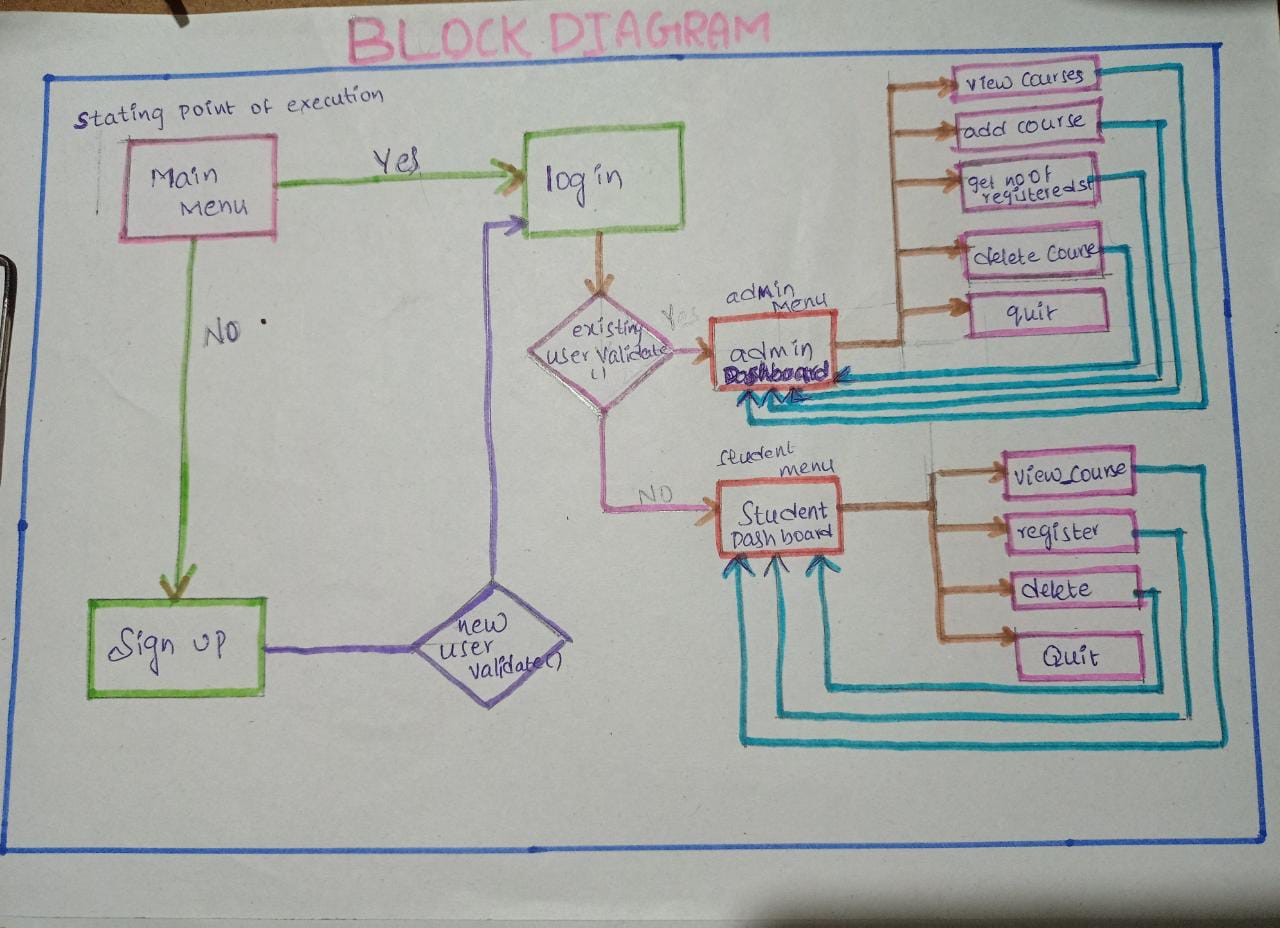 BLOCK DIAGRAM
Stating point of execution
Main
Menu
Yes
login
NO
existing
user validate
()
Yes
admin
Menu
admin
Dashboard
view courses
add course
get no of
registeredst
delete course
quit
NO
Student
menu
Student
Dashboard
view_course
register
delete
Quit
Sign up
new
user
validate()